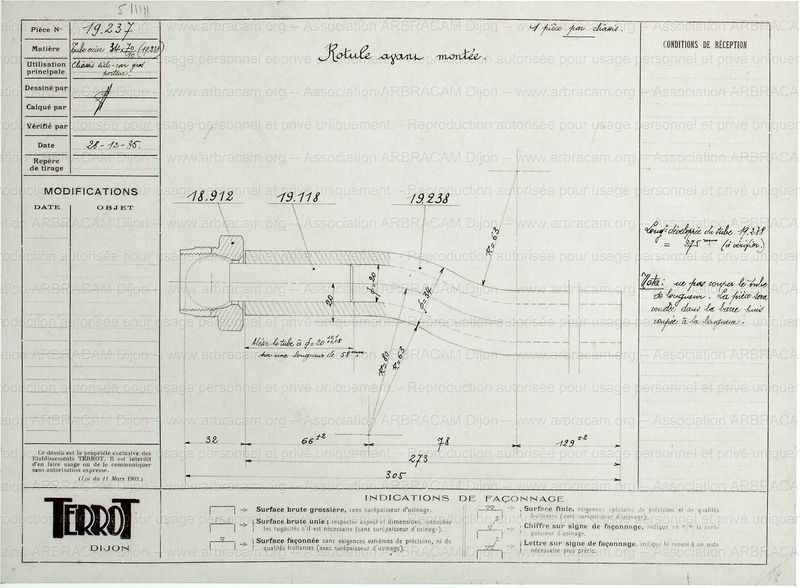 Pièce Nº 19.237
Matière Tube acier 34 x 70/10 (19.238)
Utilisation principale Châssis side-car gros porteur.
Dessiné par
Calqué par
Vérifié par
Date 28-12-35.
Repère de tirage
MODIFICATIONS
DATE OBJET
1 pièce par châssis.
Rotule avant montée.
CONDITIONS DE RÉCEPTION
18.912 19.118 19.238
R=63
φ=20
φ=34
20
R=80
R=63
Aléser le tube à φ=20
sur une longueur de 58 mm
32 66 ±2 78 129 ±2
273
305
Longr développée du tube 19.238
= 275 mm (à vérifier)
Nota: ne pas couper le tube
de longueur. La pièce sera
coudée dans la barre puis
coupée à la longueur.
Ce dessin est la propriété exclusive des
Etablissements TERROT. Il est interdit
d'en faire usage ou de le communiquer
sans autorisation expresse.
(Loi du 11 Mars 1902.)
TERROT
DIJON
INDICATIONS DE FAÇONNAGE
Surface brute grossière, sans surépaisseur d'usinage.
Surface brute unie; respecter aspect et dimensions, retoucher
les rugosités s'il est nécessaire (sans surépaisseur d'usinage).
Surface façonnée sans exigences extrêmes de précision, ni de
qualités frottantes (avec surépaisseur d'usinage).
Surface finie, exigences spéciales de précision et de qualités
frottantes (avec surépaisseur d'usinage).
Chiffre sur signe de façonnage, indique en m/m la surépaisseur d'usinage.
Lettre sur signe de façonnage, indique le renvoi à une note
nécessaire plus précis.
www.arbracam.org -- Association ARBRACAM Dijon -- www.arbracam.org -- Association ARBRACAM Dijon
Reproduction autorisée pour usage personnel et privé uniquement.